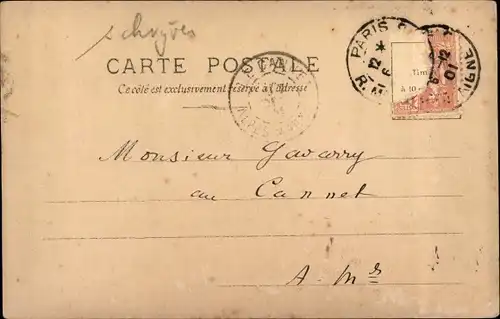 CARTE POSTALE
Ce côté est exclusivement réservé à l'adresse
PARIS
12
6
12
01
Monsieur Gavarry
au Cannet
A. Mes